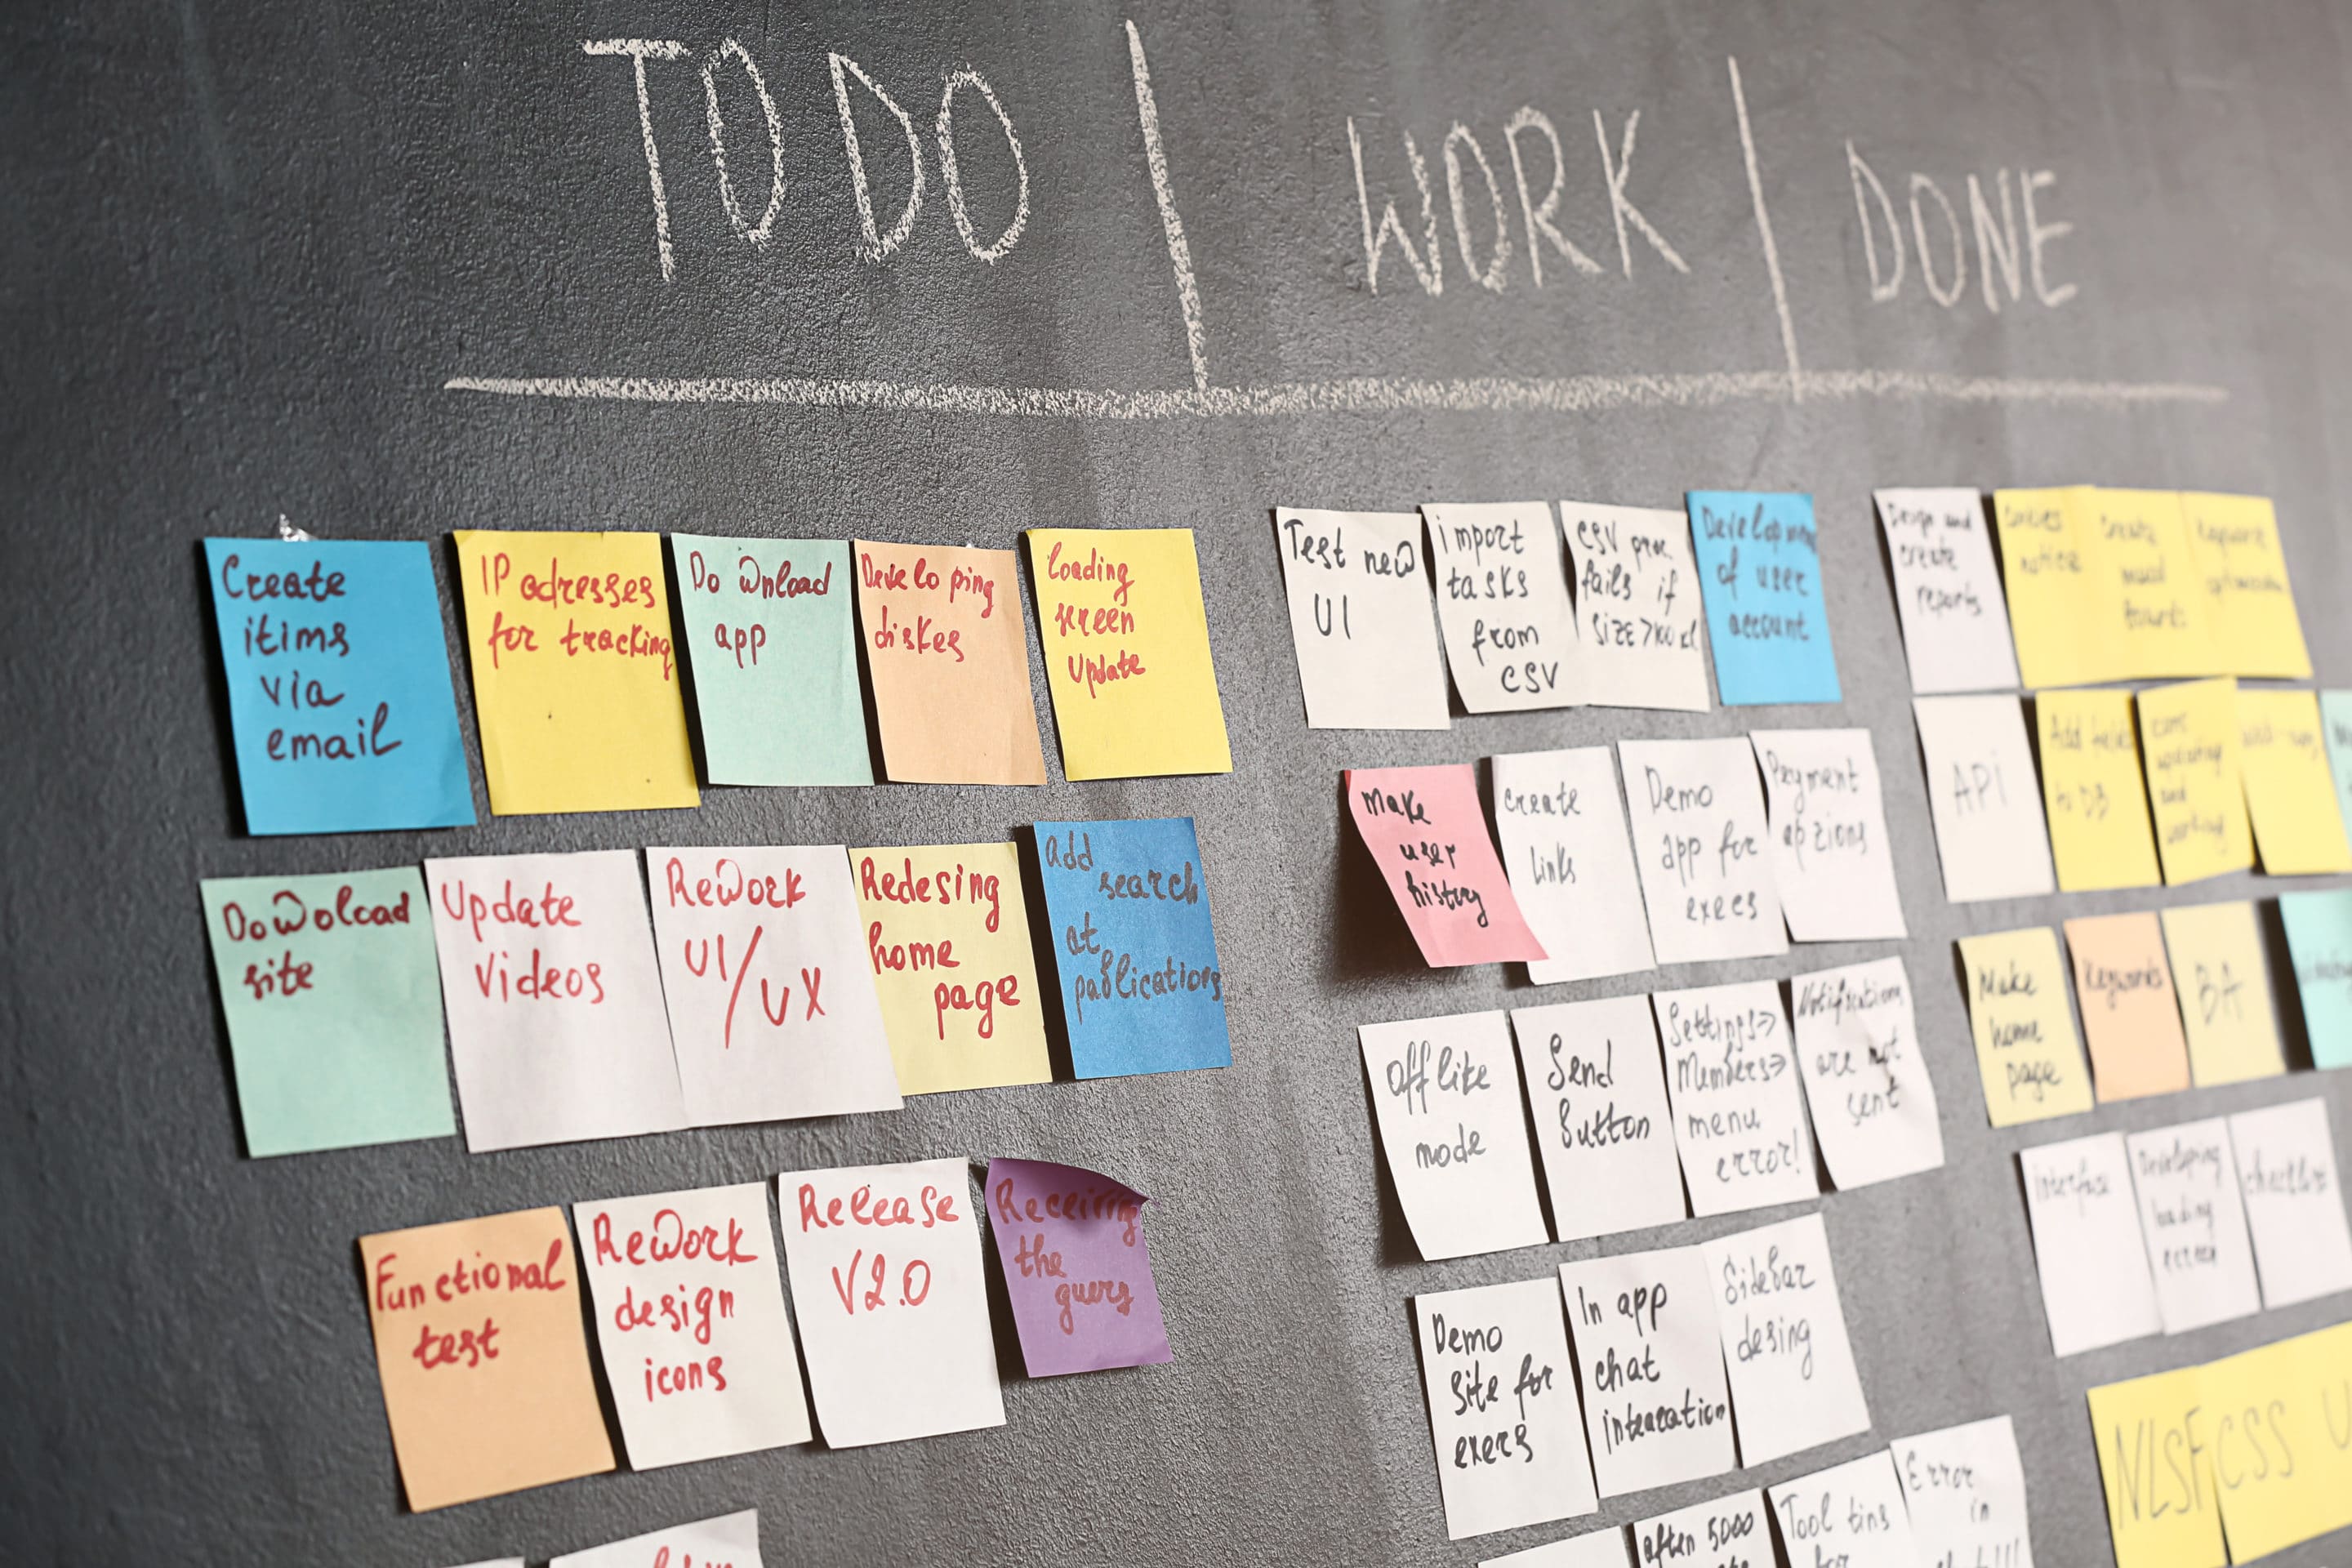 TO DO
WORK
DONE
Create
itims
via
email
IP adresses
for tracking
DoWnload
app
Developing
diskes
loading
screen
Update
DoWoload
site
Update
Videos
ReWork
UI/UX
Redesing
home
page
add
search
at
publications
Functional
test
ReWork
design
icons
Release
V2.0
Receiving
the
query
Test new
UI
import
tasks
from
CSV
CSV
fails if
Development
of user
account
make
user
history
create
links
Demo
app for
execs
Payment
opzions
Offlike
mode
Send
Button
Settings=>
Members=>
menu
error!
Notifications
are not
sent
Demo
site for
exers
In app
chat
SideBar
desing
after 5000
Tool tins
for
Error
in
Design and
create
reports
notice
Create
API
Add fields
to DB
and
Make
home
page
Keywords
BA
interface
Developing
loading
checklist
NLSF
CSS